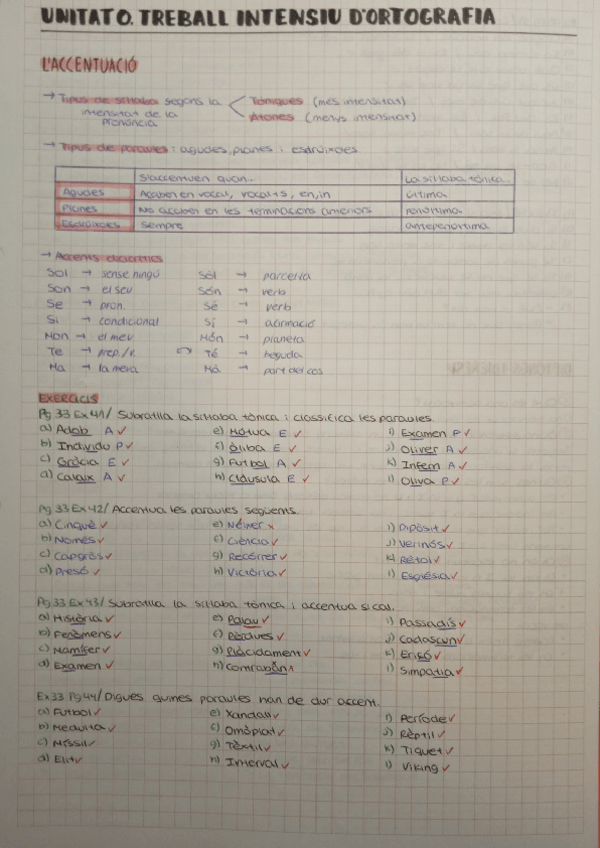 UNITAT 0. TREBALL INTENSIU D'ORTOGRAFIA
L'ACCENTUACIÓ
→ Tipus de síl·laba segons la intensitat de la pronúncia < Tòniques (més intensitat)
Àtones (menys intensitat)
→ Tipus de paraules: agudes, planes i esdrúixoles
S'accentuen quan... La síl·laba tònica...
Agudes Acaben en vocal, vocal+s, en, in última
Planes No acaben en les terminacions anteriors penúltima
Esdrúixoles Sempre antepenúltima
→ Accents diacrítics
Sol → sense ningú Sòl → parcel·la
Son → el seu Són → verb
Se → pron. Sé → verb
Si → condicional Sí → afirmació
Mon → el meu Món → planeta
Te → prep./v. Té → beguda
Ma → la meva Mà → part del cos
EXERCICIS
Pg 33 Ex 41/ Subratlla la síl·laba tònica i classifica les paraules.
a) Adob A ✓ e) Mútua E ✓ i) Examen P ✓
b) Individu P ✓ f) Òliba E ✓ j) Oliver A ✓
c) Gràcia E ✓ g) Futbol A ✓ k) Infern A ✓
d) Calaix A ✓ h) Clàusula E ✓ l) Oliva P ✓
Pg 33 Ex 42/ Accentua les paraules següents.
a) Cinquè ✓ e) x i) Dipòsit ✓
b) Només ✓ f) Ciència ✓ j) Verinós ✓
c) Capgròs ✓ g) Recórrer ✓ k) Rètol ✓
d) Presó ✓ h) Victòria ✓ l) Església ✓
Pg 33 Ex 43/ Subratlla la síl·laba tònica i accentua si cal.
a) Història ✓ e) Palau ✓ i) Passadís ✓
b) Fenòmens ✓ f) Pèrdues ✓ j) Cadascun ✓
c) Mamífer ✓ g) Plàcidament ✓ k) Eriçó ✓
d) Examen ✓ h) x l) Simpatia ✓
Ex 33 Pg 44/ Digues quines paraules han de dur accent.
a) Futbol ✓ e) Xandall ✓ i) Període ✓
b) Medul·la ✓ f) Omòplat ✓ j) Rèptil ✓
c) Míssil ✓ g) Tèxtil ✓ k) Tiquet ✓
d) Elit ✓ h) Interval ✓ l) Víking ✓